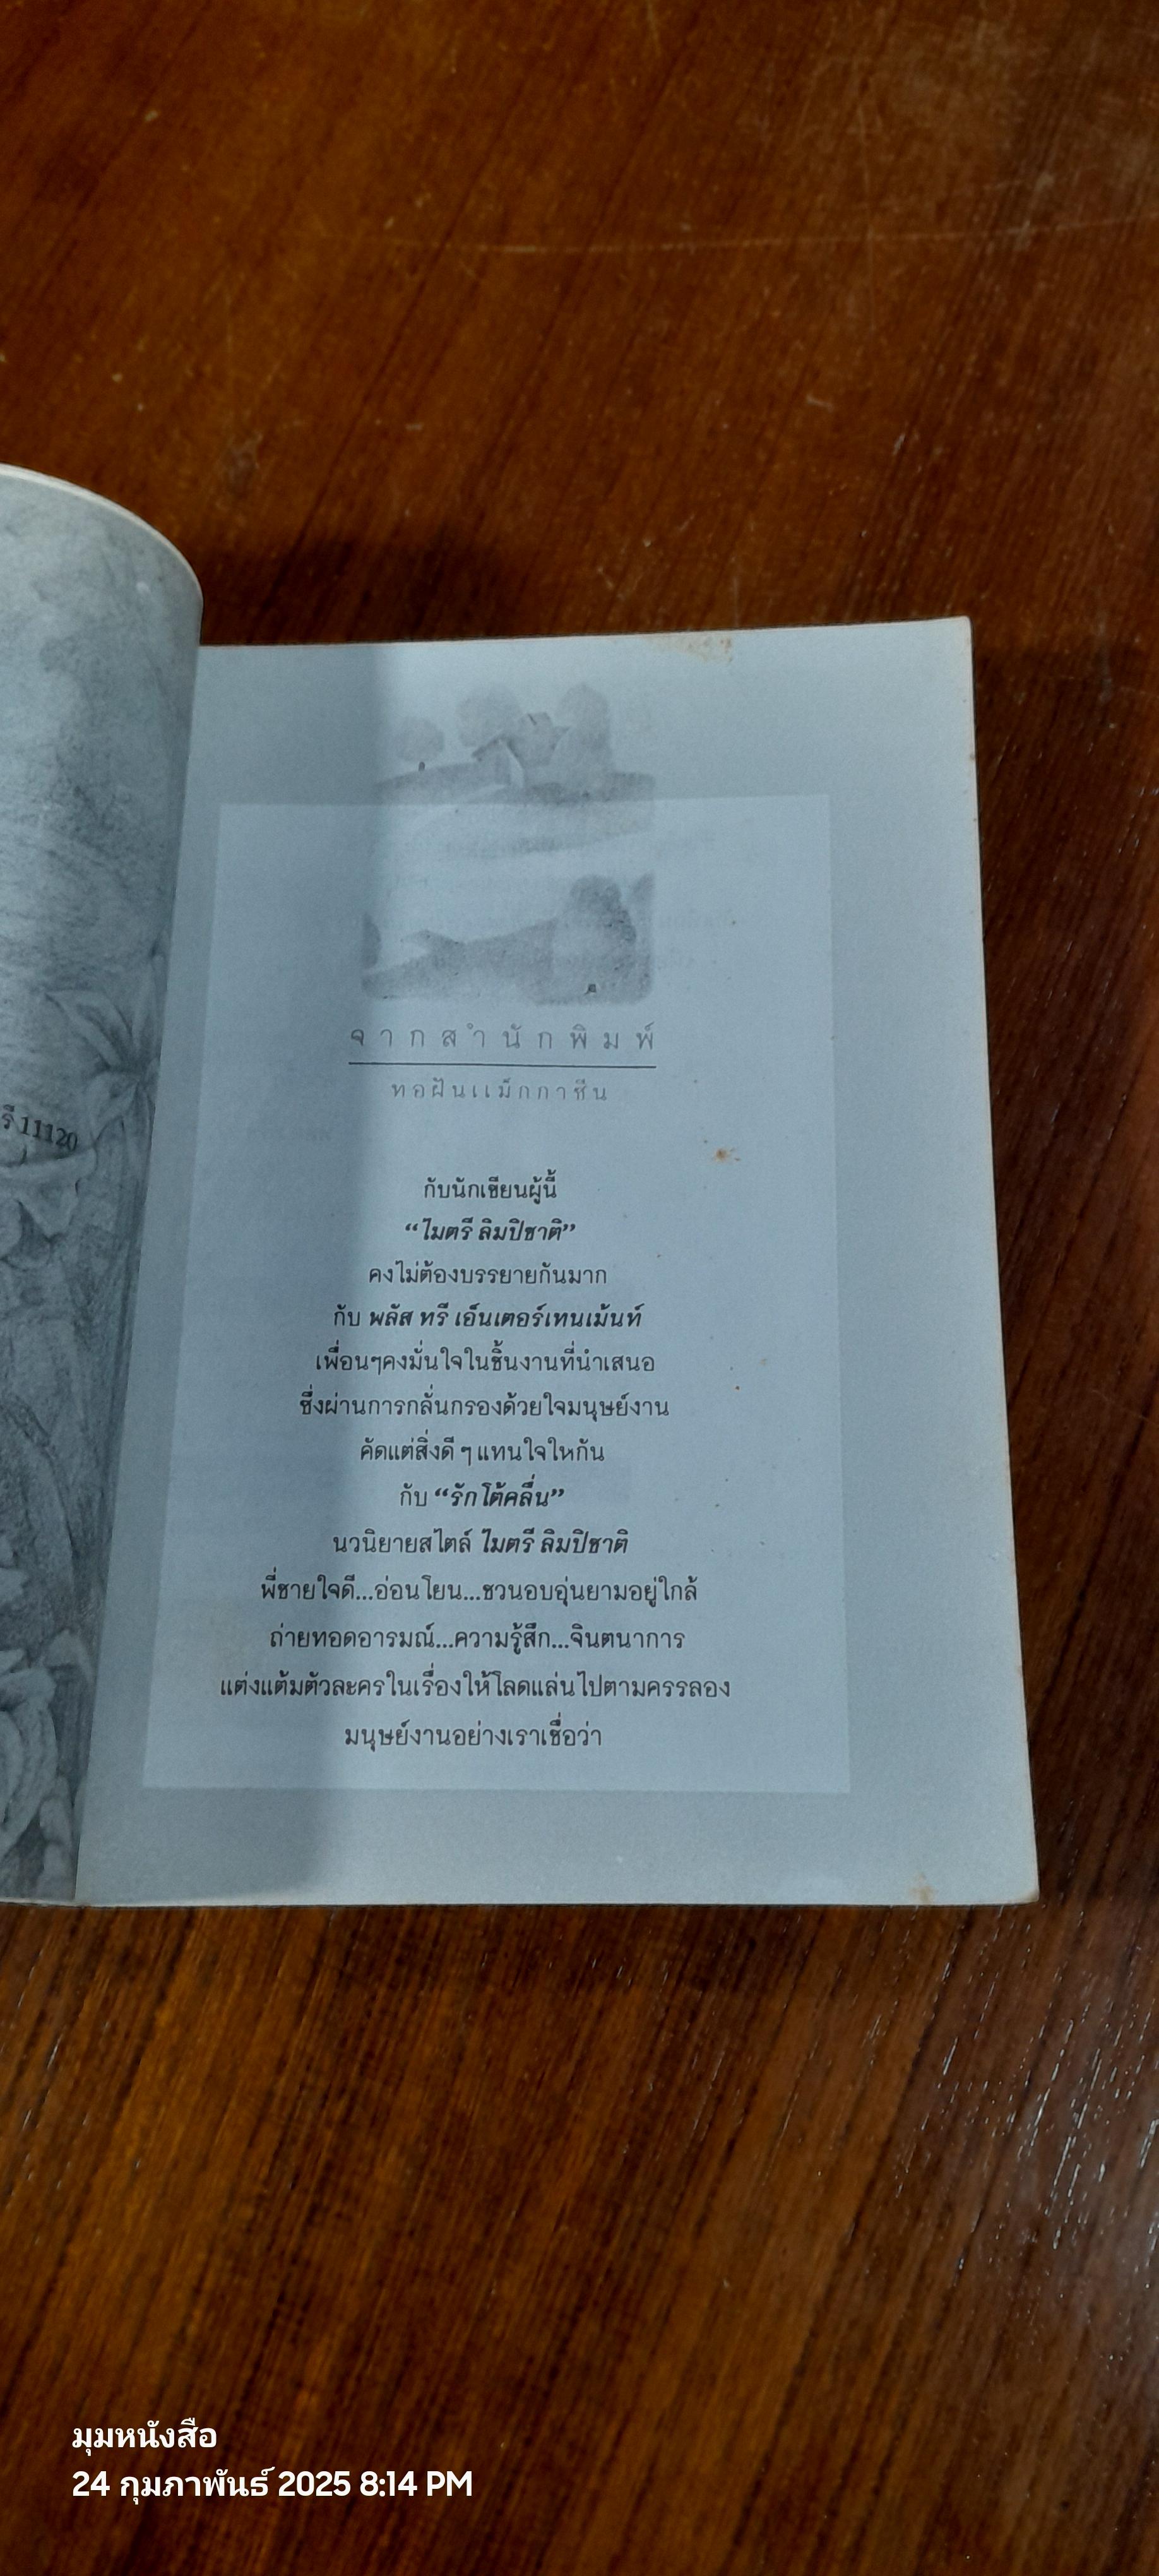 รี 11120
จากสำนักพิมพ์
ทอฝันแม็กกาซีน
กับนักเขียนผู้นี้
“ไมตรี ลิมปิชาติ”
คงไม่ต้องบรรยายกันมาก
กับ พลัส ทรี เอ็นเตอร์เทนเม้นท์
เพื่อนๆคงมั่นใจในชิ้นงานที่นำเสนอ
ซึ่งผ่านการกลั่นกรองด้วยใจมนุษย์งาน
คัดแต่สิ่งดี ๆ แทนใจให้กัน
กับ “รักโต้คลื่น”
นวนิยายสไตล์ ไมตรี ลิมปิชาติ
พี่ชายใจดี...อ่อนโยน...ชวนอบอุ่นยามอยู่ใกล้
ถ่ายทอดอารมณ์...ความรู้สึก...จินตนาการ
แต่งแต้มตัวละครในเรื่องให้โลดแล่นไปตามครรลอง
มนุษย์งานอย่างเราเชื่อว่า
มุมหนังสือ
24 กุมภาพันธ์ 2025 8:14 PM